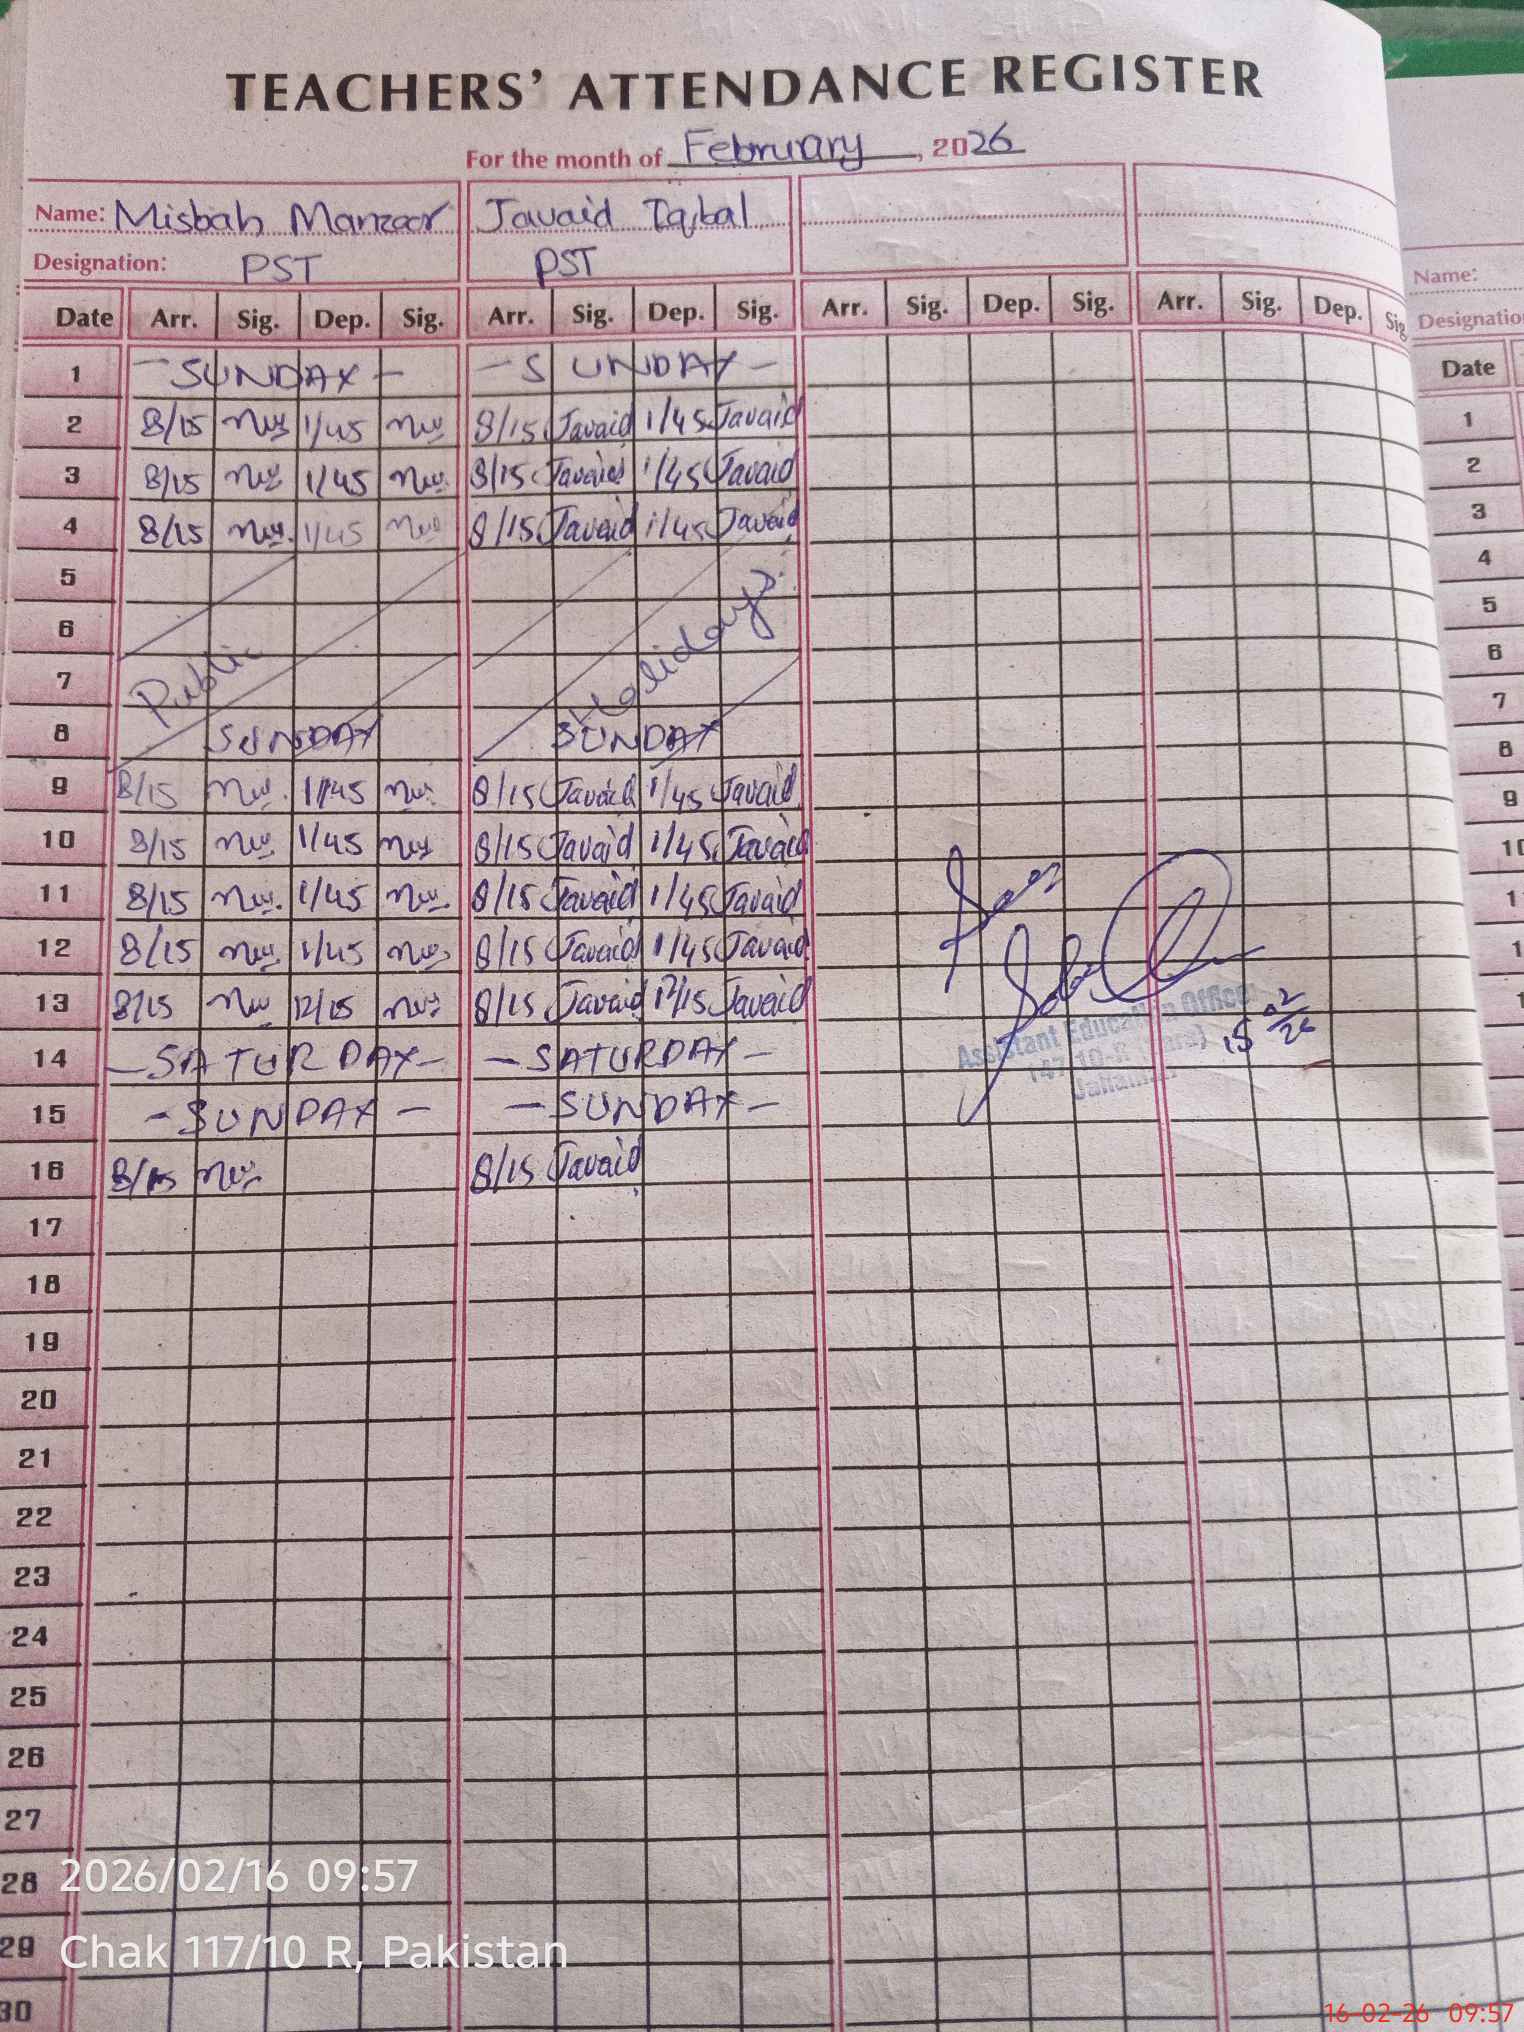 TEACHERS' ATTENDANCE REGISTER
For the month of February, 2026
Name: Misbah Manzoor Javaid Iqbal
Designation: PST PST
Date Arr. Sig. Dep. Sig. Arr. Sig. Dep. Sig. Arr. Sig. Dep. Sig. Arr. Sig. Dep. Sig
1 -SUNDAY- -SUNDAY-
2 8/15 1/45 8/15 Javaid 1/45 Javaid
3 8/15 1/45 8/15 Javaid 1/45 Javaid
4 8/15 1/45 8/15 Javaid 1/45 Javaid
5
6
7 Public Holidays
8 SUNDAY SUNDAY
9 8/15 1/45 8/15 Javaid 1/45 Javaid
10 8/15 1/45 8/15 Javaid 1/45 Javaid
11 8/15 1/45 8/15 Javaid 1/45 Javaid
12 8/15 1/45 8/15 Javaid 1/45 Javaid
13 8/15 12/15 8/15 Javaid 12/15 Javaid
14 -SATURDAY- -SATURDAY-
15 -SUNDAY- -SUNDAY-
16 8/15 8/15 Javaid
17
18
19
20
21
22
23
24
25
26
27
28
29
30
Assistant Education Officer
15 02/26
Name:
Designatio
Date
1
2
3
4
5
6
7
8
9
10
2026/02/16 09:57
Chak 117/10 R, Pakistan
16-02-26 09:57